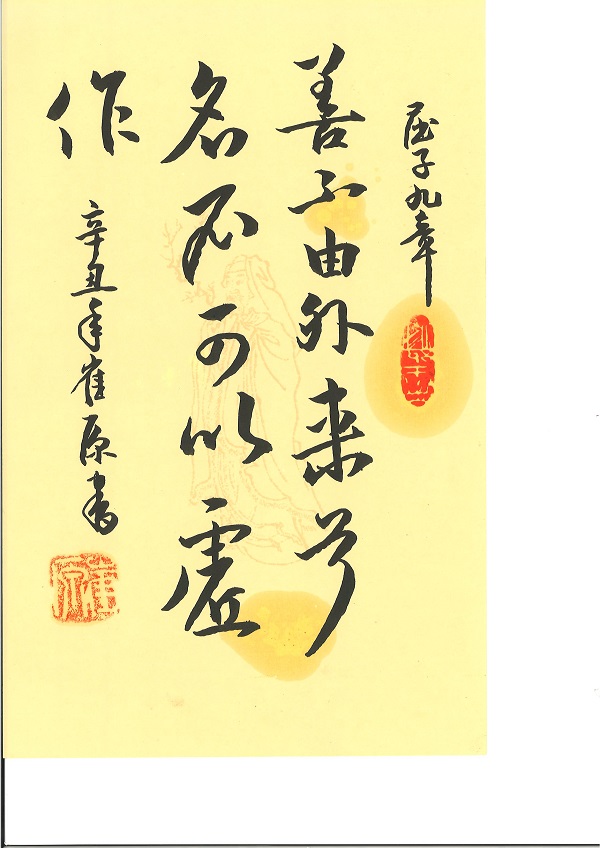 屈子九章
善不由外来兮
名不可以虚
作
辛丑年崔原书
崔原